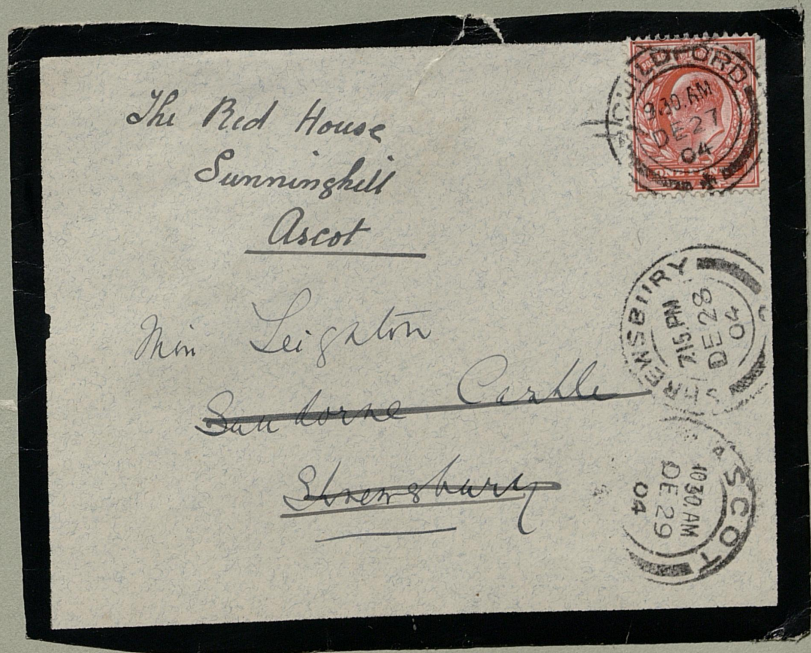 The Red House
Sunninghill
Ascot
Miss Leighton
Sundorne Castle
Shrewsbury
GUILDFORD
9.30.AM
DE 27
04
REWSBURY
7.15.PM
DE 28
04
ASCOT
10.30.AM
DE 29
04